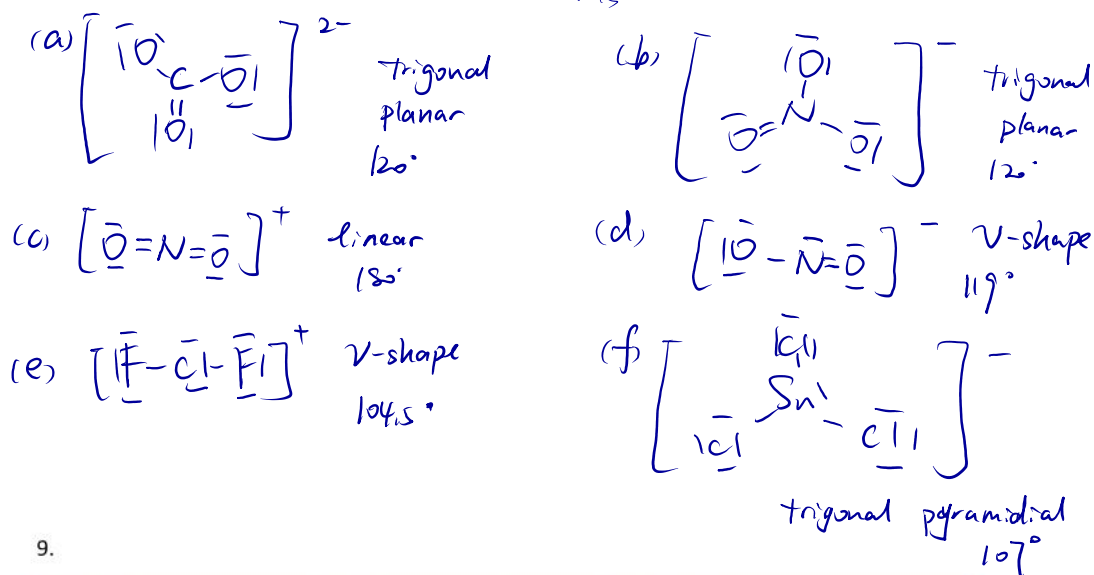 (a) [ |O C-O| || |O| ] 2-
trigonal
planar
120°
(b) [ |O| | N O= -O| ] -
trigonal
planar
120°
(c) [O=N=O]+ linear
180°
(d) [|O-N=O]- V-shape
119°
(e) [|F-Cl-F|]+ V-shape
104.5°
(f) [ |Cl| Sn |Cl - Cl| ] -
trigonal pyramidial
107°
9.